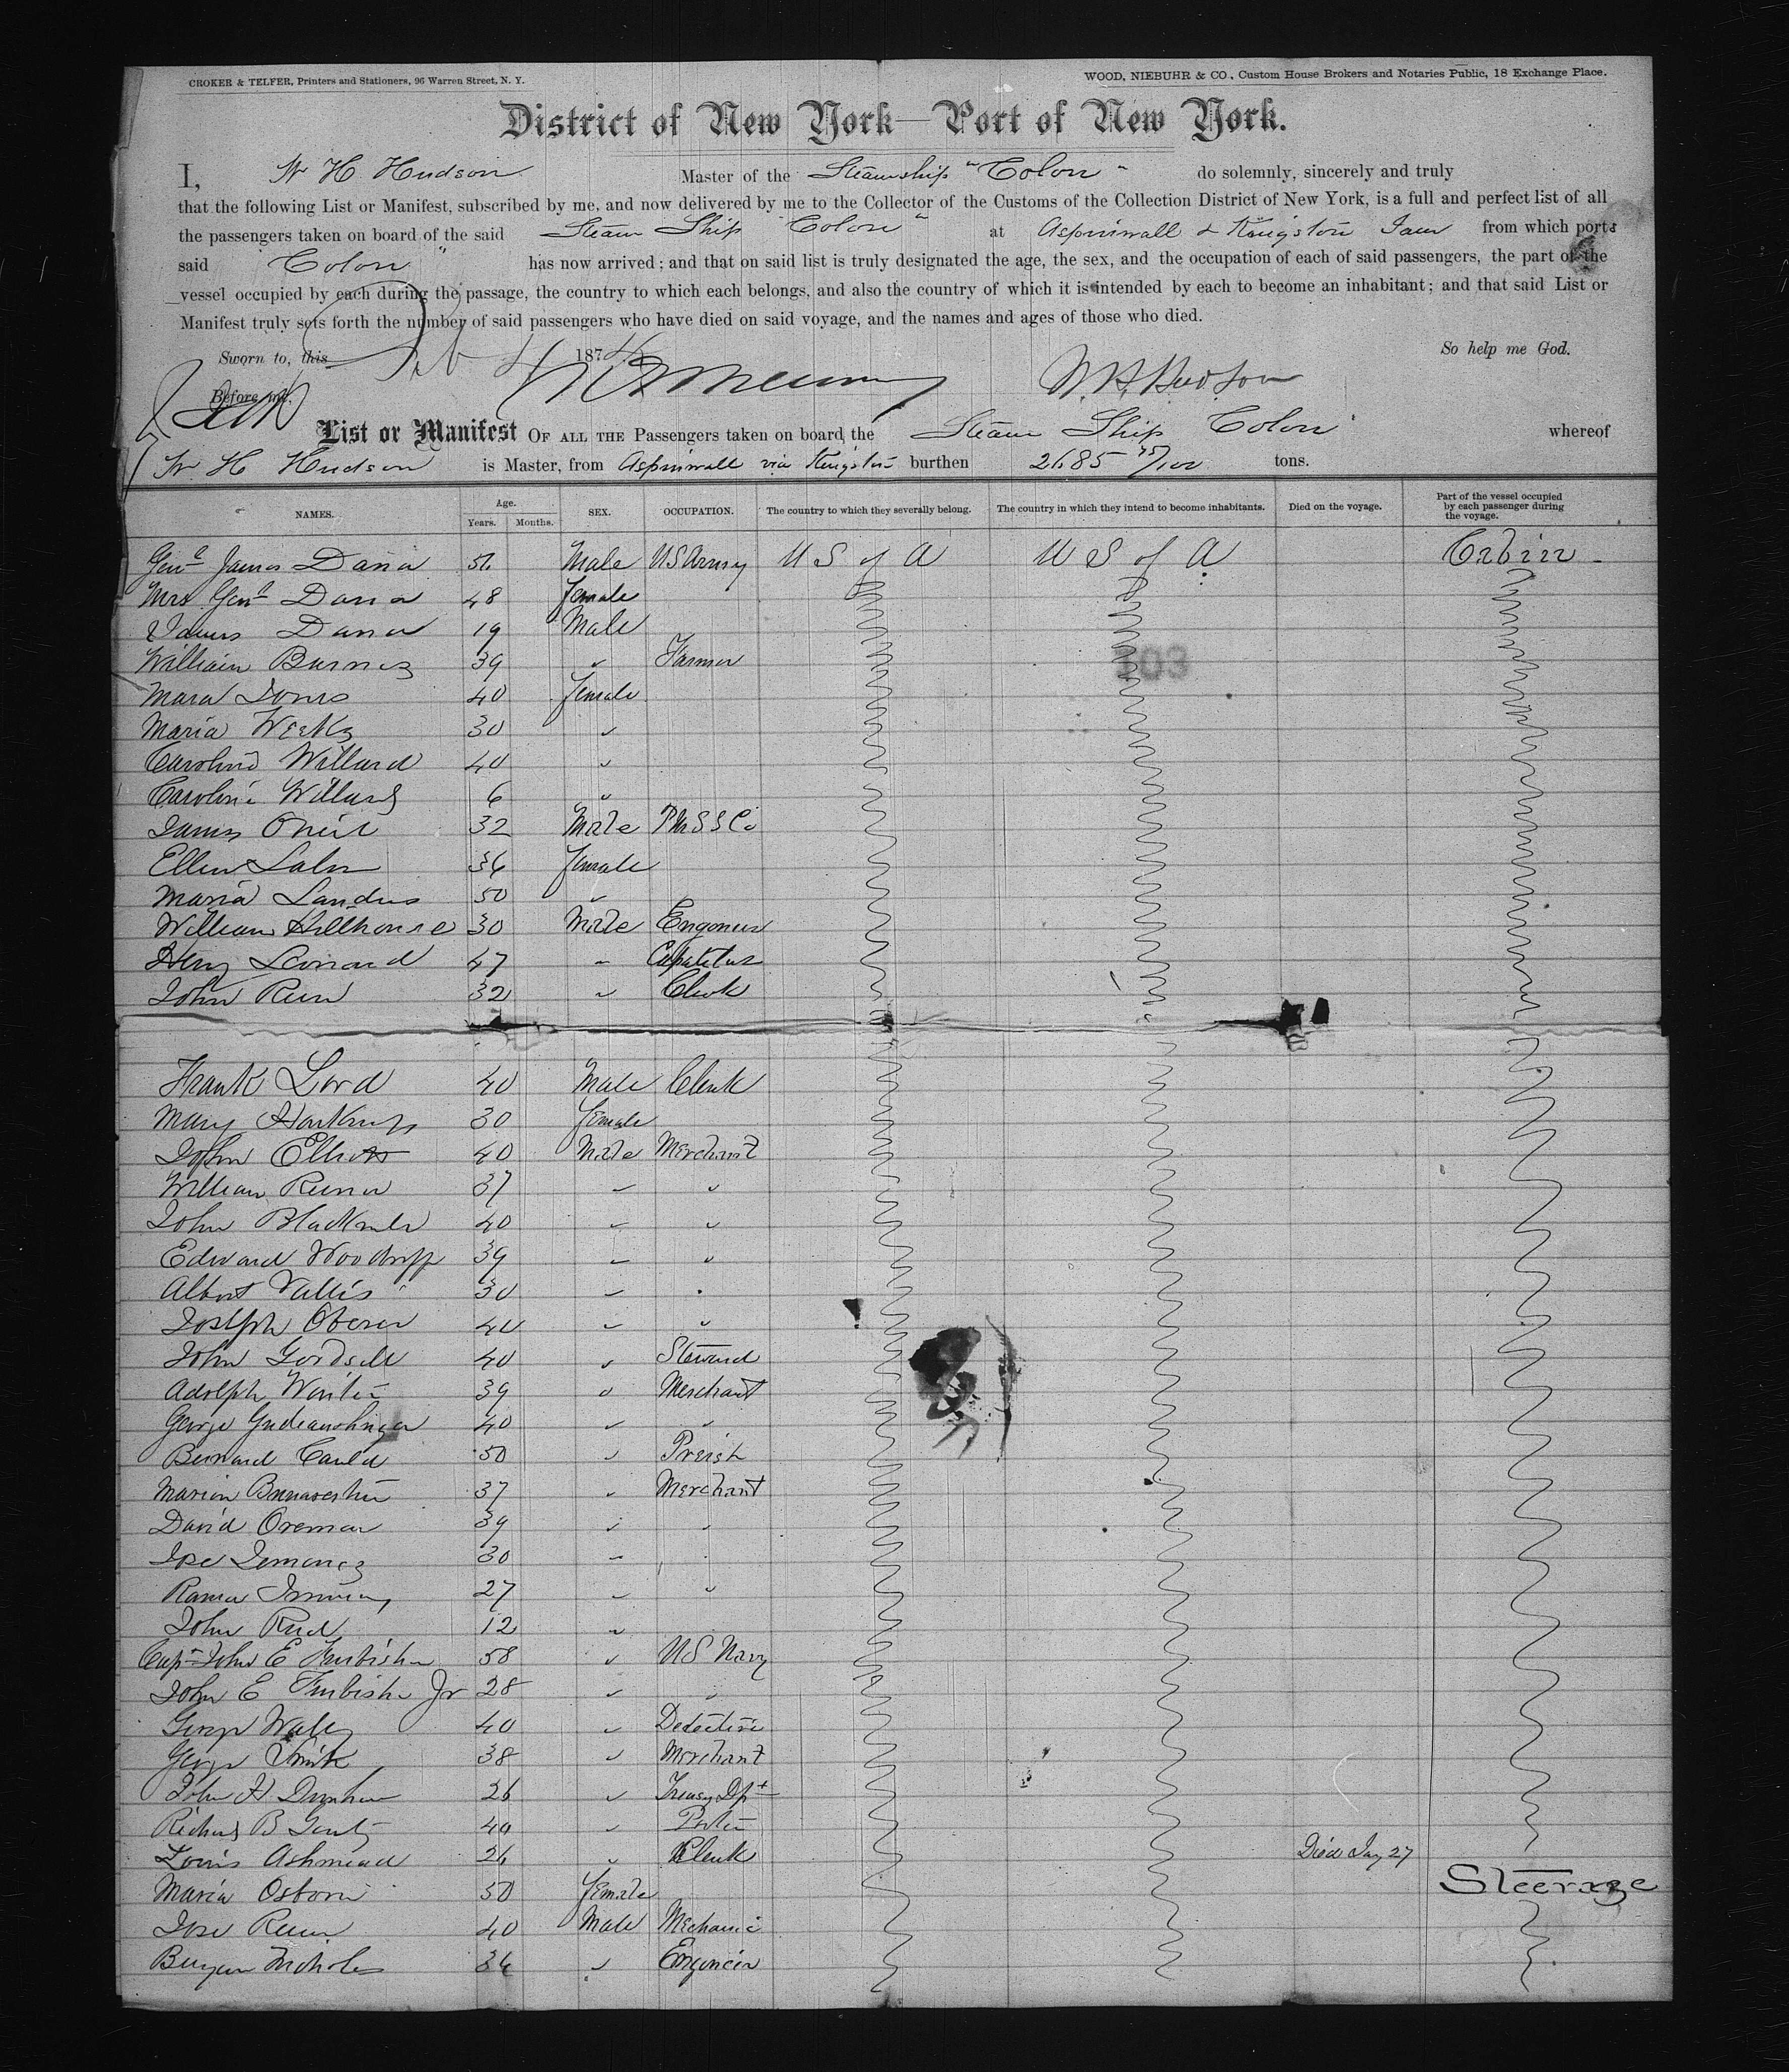 CROKER & TELFER, Printers and Stationers, 96 Warren Street, N. Y.
WOOD, NIEBUHR & CO., Custom House Brokers and Notaries Public, 18 Exchange Place.
District of New York—Port of New York.
I, W H Hudson Master of the Steamship "Colon" do solemnly, sincerely and truly
that the following List or Manifest, subscribed by me, and now delivered by me to the Collector of the Customs of the Collection District of New York, is a full and perfect list of all
the passengers taken on board of the said Steam Ship Colon" at Aspinwall & Kingston Jam from which ports
said "Colon" has now arrived; and that on said list is truly designated the age, the sex, and the occupation of each of said passengers, the part of the
vessel occupied by each during the passage, the country to which each belongs, and also the country of which it is intended by each to become an inhabitant; and that said List or
Manifest truly sets forth the number of said passengers who have died on said voyage, and the names and ages of those who died.
So help me God.
Sworn to, this Feb 4 1874
W. H. Hudson
Before me.
List or Manifest OF ALL THE Passengers taken on board the Steam Ship Colon whereof
W. H Hudson is Master, from Aspinwall via Kingston burthen 2685 75/100 tons.
NAMES. Age. Years. Months. SEX. OCCUPATION. The country to which they severally belong. The country in which they intend to become inhabitants. Died on the voyage. Part of the vessel occupied by each passenger during the voyage.
Genl James Dana 56 Male US Army U S of A U S of A Cabin
Mrs Genl Dana 48 female
James Dana 19 Male
William Barnes 39 " Farmer
103
Mara Jones 40 female
Maria Weeks 30 "
Caroline Willard 40 "
Caroline Willard 6 "
James Oneil 32 Male PMSSCo
Ellen 36 female
Maria Landus 50 "
William Hillhouse 30 Male Engoneer
Henry Leonard 47 "
John 32 " Clerk
Frank Lord 40 Male Clerk
Mary 30 female
John Elliott 40 Male Merchant
William 37 " "
John 40 " "
Edward Woodruff 39 " "
Albert Vallis 30 " "
Joseph 40 " "
John Goodsell 40 " Steward
Adolph 39 " Merchant
George 40 " "
Bernard 50 " Preish
Marion 37 " Merchant
David 39 " "
Jose Jemenez 30 " "
27 " "
John Reed 12 "
Capt John E Furbisher 58 " US Navy
John E Furbisher Jr 28 " "
George 40 " Detective
George Smith 38 " Merchant
John H 26 " Treasy Dpt
Richard B 40 "
Louis Ashmead 26 " Clerk Died Jay 27
Maria Osborn 50 female Steerage
Jose 40 Male Mechanic
Nicholes 34 " Engoneer